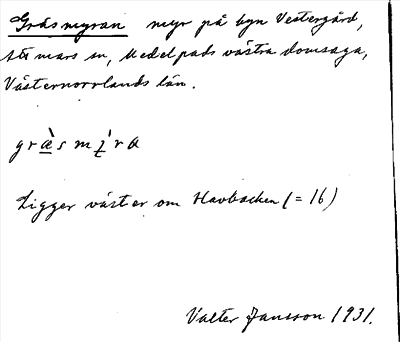 Gräsmyran myr på byn Vestergård,
mars sn, Medelpads västra domsaga,
Västernorrlands län.
græ̀smý̨ra
Ligger väster om Havbacken (= 16)
Valter Jansson 1931.